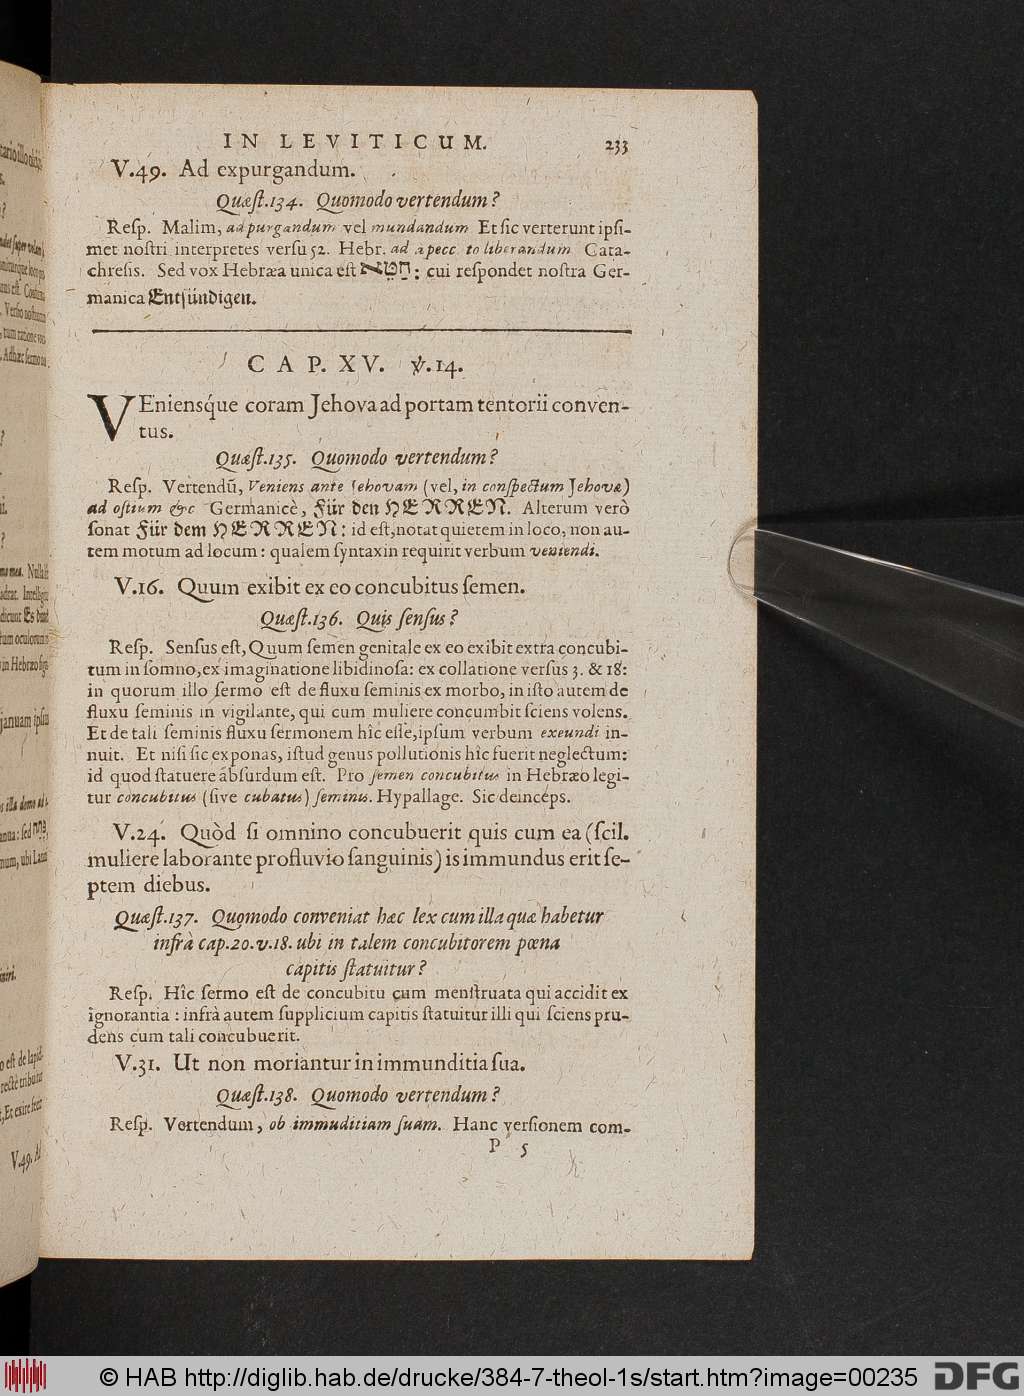 IN LEVITICUM. 233
V.49. Ad expurgandum.
Quæſt.134. Quomodo vertendum?
Reſp. Malim, adpurgandum vel mundandum Et ſic verterunt ipſi-
met noſtri interpretes verſu 52. Hebr. ad apecc to liberandum Cata-
chreſis. Sed vox Hebræa unica eſt חטא: cui reſpondet noſtra Ger-
manica Entſündigen.
CAP. XV. v.14.
VEniensq́ue coram Jehova ad portam tentorii conven-
tus.
Quæſt.135. Quomodo vertendum?
Reſp. Vertendũ, Veniens ante Jehovam (vel, in conſpectum Jehovæ)
ad oſtium &c Germanicè, Für den HERREN. Alterum verò
ſonat Für dem HERREN: id eſt, notat quietem in loco, non au-
tem motum ad locum: qualem ſyntaxin requirit verbum veniendi.
V.16. Quum exibit ex eo concubitus ſemen.
Quæſt.136. Quis ſenſus?
Reſp. Senſus eſt, Quum ſemen genitale ex eo exibit extra concubi-
tum in ſomno, ex imaginatione libidinoſa: ex collatione verſus 3. & 18:
in quorum illo ſermo eſt de fluxu ſeminis ex morbo, in iſto autem de
fluxu ſeminis in vigilante, qui cum muliere concumbit ſciens volens.
Et de tali ſeminis fluxu ſermonem hîc eſſe, ipſum verbum exeundi in-
nuit. Et niſi ſic exponas, iſtud genus pollutionis hîc fuerit neglectum:
id quod ſtatuere abſurdum eſt. Pro ſemen concubitus in Hebræo legi-
tur concubitus (ſive cubatus) ſeminis. Hypallage. Sic deinceps.
V.24. Quòd ſi omnino concubuerit quis cum ea (ſcil.
muliere laborante profluvio ſanguinis) is immundus erit ſe-
ptem diebus.
Quæſt.137. Quomodo conveniat hæc lex cum illa quæ habetur
infrà cap.20.v.18. ubi in talem concubitorem pœna
capitis ſtatuitur?
Reſp. Hîc ſermo eſt de concubitu cum menſtruata qui accidit ex
ignorantia: infrà autem ſupplicium capitis ſtatuitur illi qui ſciens pru-
dens cum tali concubuerit.
V.31. Ut non moriantur in immunditia ſua.
Quæſt.138. Quomodo vertendum?
Reſp. Vertendum, ob immuditiam ſuam. Hanc verſionem com-
P 5
© HAB http://diglib.hab.de/drucke/384-7-theol-1s/start.htm?image=00235
DFG